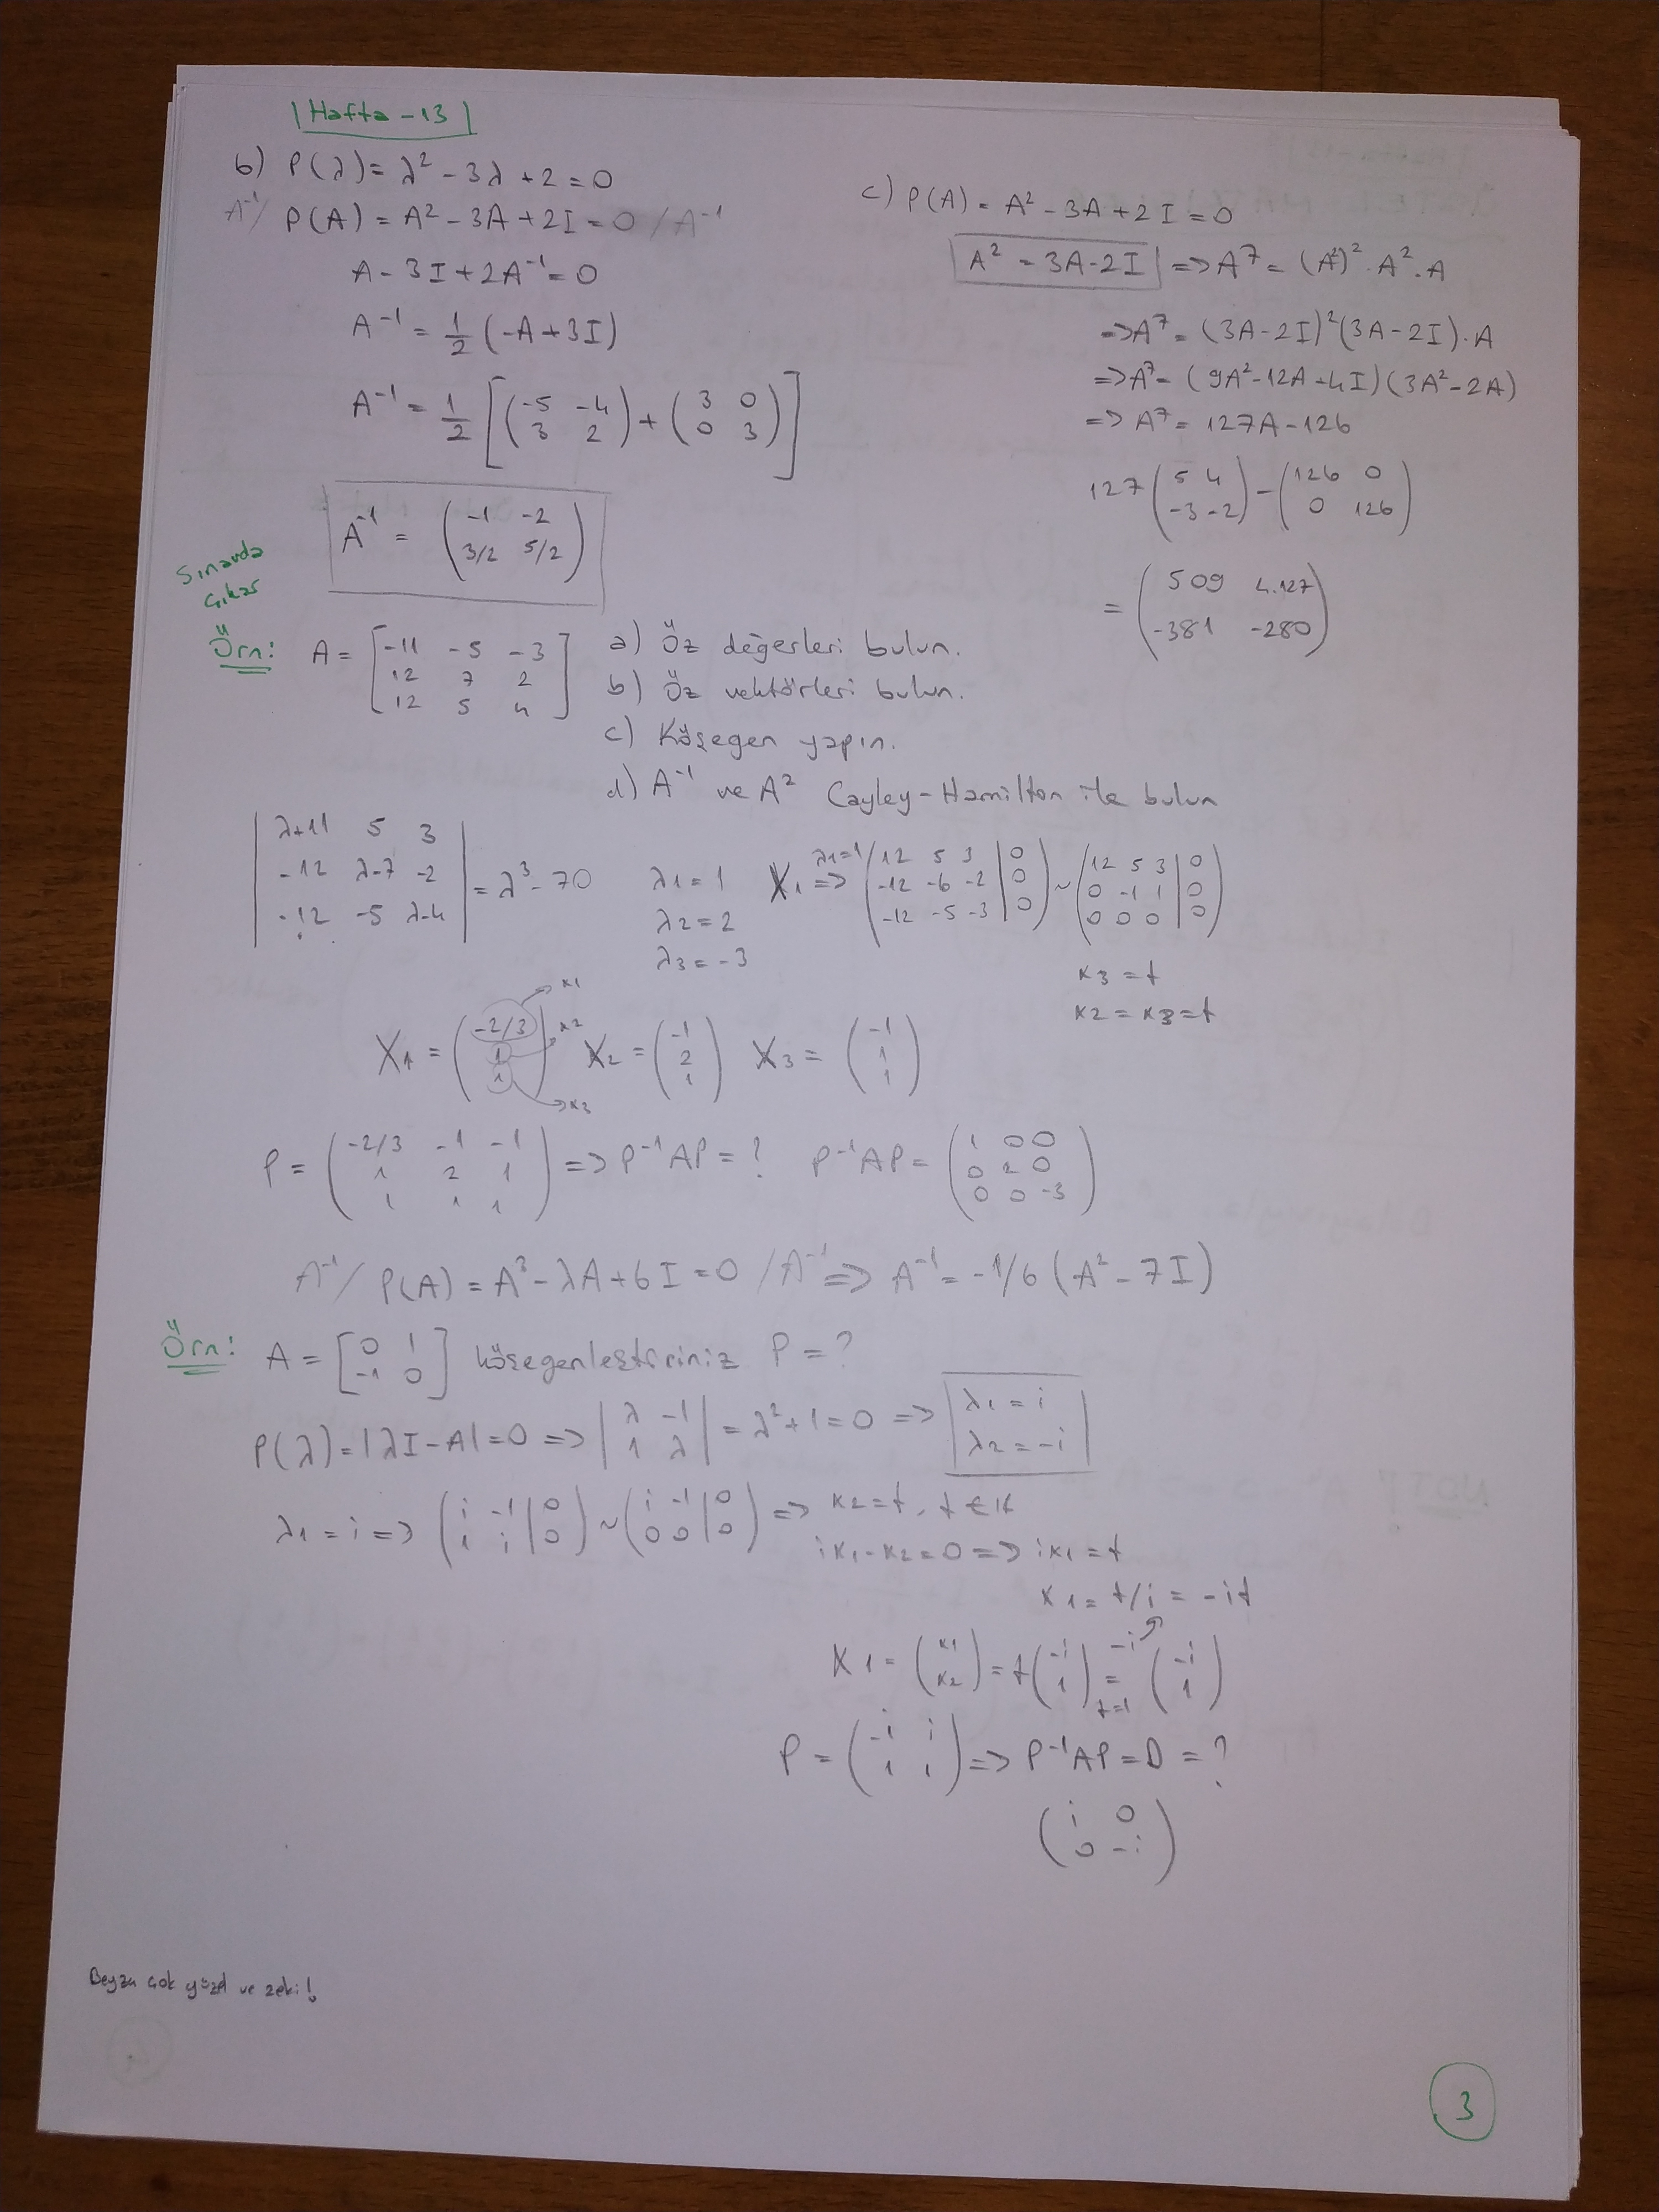 Hafta-13
b) P(λ) = λ² - 3λ + 2 = 0
A⁻¹/ P(A) = A² - 3A + 2I = 0 /A⁻¹
A - 3I + 2A⁻¹ = 0
A⁻¹ = 1/2 (-A + 3I)
A⁻¹ = 1/2 [(-5 -4
3 2) + (3 0
0 3)]
A⁻¹ = (-1 -2
3/2 5/2)
c) P(A) = A² - 3A + 2I = 0
A² = 3A - 2I => A⁷ = (A²)² . A² . A
=> A⁷ = (3A - 2I)² (3A - 2I) . A
=> A⁷ = (9A² - 12A - 4I) (3A² - 2A)
=> A⁷ = 127A - 126
127 (5 4
-3 -2) - (126 0
0 126)
= (509 4.127
-381 -280)
Sınavda
çıkar
Örn: A = [-11 -5 -3
12 7 2
12 5 4]
a) Öz değerleri bulun.
b) Öz vektörleri bulun.
c) Köşegen yapın.
d) A⁻¹ ve A² Cayley-Hamilton ile bulun
|λ+11 5 3
-12 λ-7 -2
-12 -5 λ-4| = λ³ - 70
λ1 = 1
λ2 = 2
λ3 = -3
λ1=1
X1 => (12 5 3 | 0
-12 -6 -2 | 0
-12 -5 -3 | 0) ~ (12 5 3 | 0
0 -1 1 | 0
0 0 0 | 0)
x3 = t
x2 = x3 = t
X1 = (-2/3
1
1) x1 x2 x3 X2 = (-1
2
1) X3 = (-1
1
1)
P = (-2/3 -1 -1
1 2 1
1 1 1) => P⁻¹AP = ? P⁻¹AP = (1 0 0
0 2 0
0 0 -3)
A⁻¹/ P(A) = A³ - λA + 6I = 0 /A⁻¹ => A⁻¹ = -1/6 (A² - 7I)
Örn: A = [0 1
-1 0] köşegenleştiriniz P = ?
P(λ) = |λI - A| = 0 => |λ -1
1 λ| = λ² + 1 = 0 => λ1 = i
λ2 = -i
λ1 = i => (i -1 | 0
1 i | 0) ~ (i -1 | 0
0 0 | 0) => x2 = t, t ∈ ℝ
ix1 - x2 = 0 => ix1 = t
x1 = t/i = -it
X1 = (x1
x2) = t (-i
1) = (-i
1)
t=1
-i
P = (-i i
1 1) => P⁻¹AP = D = ?
(i 0
0 -i)
Beyza çok güzel ve zeki!
3